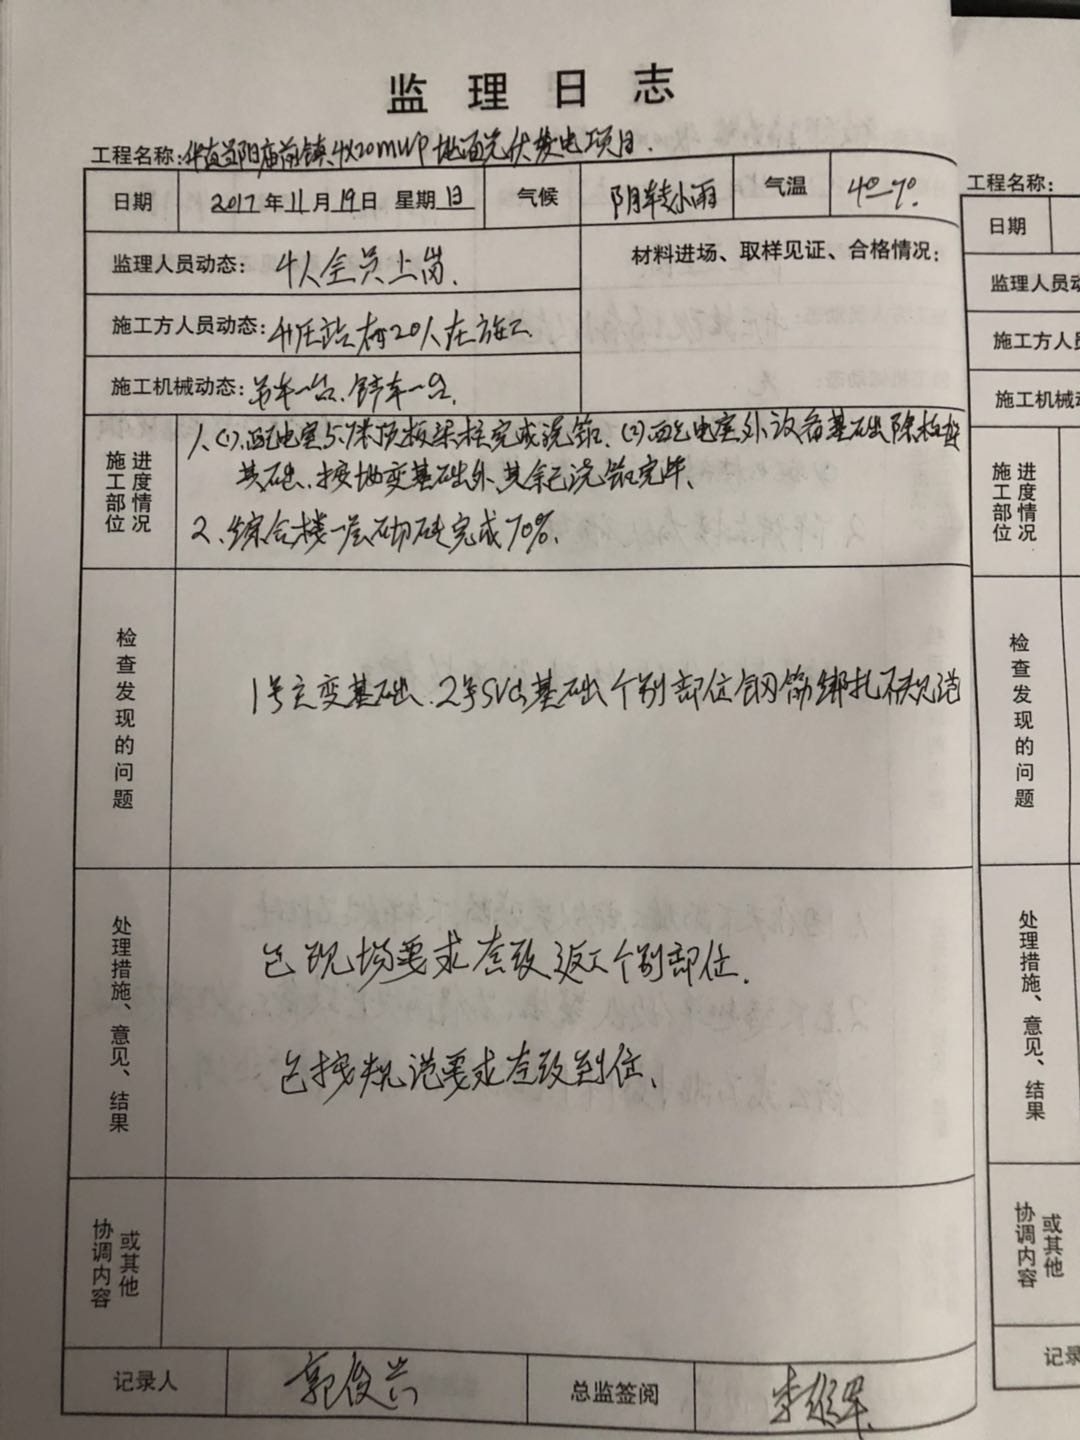 监理日志
工程名称：华直益阳庙前镇4X20MWP地面光伏发电项目.
日期 2017年11月19日 星期日 气候 阴转小雨 气温 4°—7°
监理人员动态：4人全员上岗.
材料进场、取样见证、合格情况：
施工方人员动态：升压站有20人在施工
施工机械动态：吊车一台、铲车一台.
进度情况
施工部位
1、(1)、配电室5.7米顶板梁柱完成浇筑、(2)配电室外设备基础除
基础、接地变基础外其余已浇筑完毕、
2、综合楼一层砌砖完成70%.
检查发现的问题
1号主变基础、2号SVG基础个别部位钢筋绑扎不规范
处理措施、意见、结果
已现场要求整改返工个别部位.
已按规范要求整改到位、
或其他
协调内容
记录人 郭俊兴 总监签阅
工程名称：
日期
监理人员动
施工方人员
施工机械动
进度情况
施工部位
检查发现的问题
处理措施、意见、结果
或其他
协调内容
记录